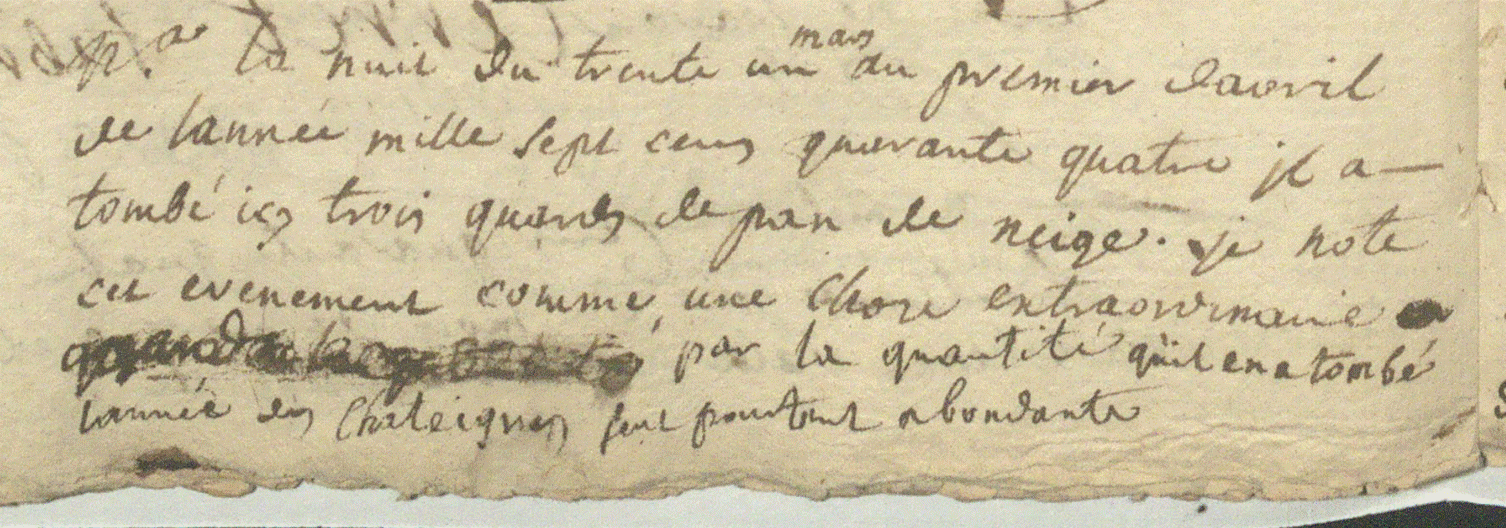 n.a la nuit du trente un mars au premier davril
de lannée mille sept cens quarante quatre jl a
tombé icy trois quards de pan de neige. je note
cet evenement comme une chose extraordinaire
par la quantité quil en a tombé
lannée des chateignes feut pourtant abondante